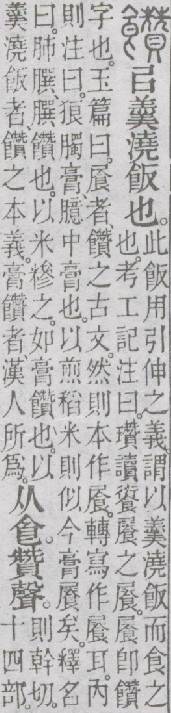 饡㠯羹澆飯也。
此飯用引伸之義謂以羹澆飯而食之
也。考工記注曰。瓚讀之卽饡
字也。玉篇曰。者饡之古文。然則本作。轉寫作耳。內
則注曰。狼臅膏臆中膏也。以煎稻米則似今膏矣。釋名
曰。肺𦠆𦠆饡也。以米糝之。如膏饡也。以
羹澆飯者饡之本義。膏饡者漢人所爲。
从𠊊贊聲。
則榦切。
十四部。